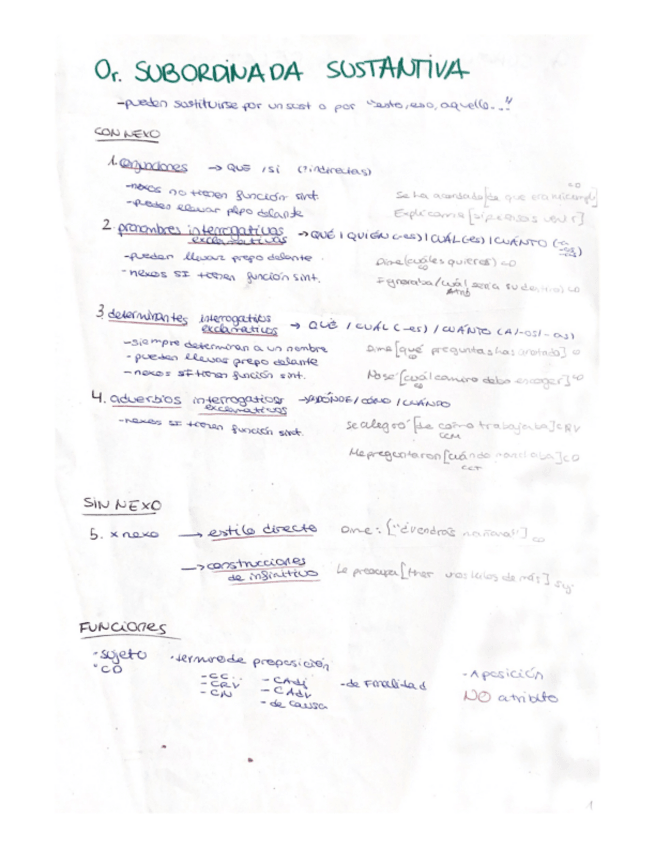 Or. SUBORDINADA SUSTANTIVA
-pueden sustituirse por un sust o por "esto, eso, aquello..."
CON NEXO
1. conjunciones → QUE / SI (?indirectas)
-nexos no tienen función sint.
-pueden llevar prepo delante
Se ha acordado [de que era mi cumple]
CD
Explícame [si puedes venir]
2. pronombres interrogativos exclamativos → QUÉ / QUIÉN (-es) / CUÁL (-es) / CUÁNTO
-pueden llevar prepo delante.
-nexos SI tienen función sint.
Dime [cuáles quieres] CD
CD
Ignoraba [cuál sería su destino] CD
Atrib
3. determinantes interrogativos exclamativos → QUÉ / CUÁL (-es) / CUÁNTO (A/-OS/-as)
-siempre determinan a un nombre
-pueden llevar prepo delante
-nexos SI tienen función sint.
Dime [qué preguntas has acertado]
CD
No sé [cuál camino debo escoger] CD
CD
4. adverbios interrogativos exclamativos → ADÓNDE / CÓMO / CUÁNDO
-nexos SI tienen función sint.
Se alegró [de cómo trabajaba] CRV
CCM
Me preguntaron [cuándo marchaba] CD
CCT
SIN NEXO
5. x nexo → estilo directo
Dime: ["¿vendrás mañana?"] CD
→ construcciones de infinitivo
Le preocupa [unos kilos de más] Suj
FUNCIONES
-sujeto
-CD
-término de preposición
-CC
-CRV
-CN
-CAdj
-CAdv
-de causa
-de finalidad
-Aposición
NO atributo
1